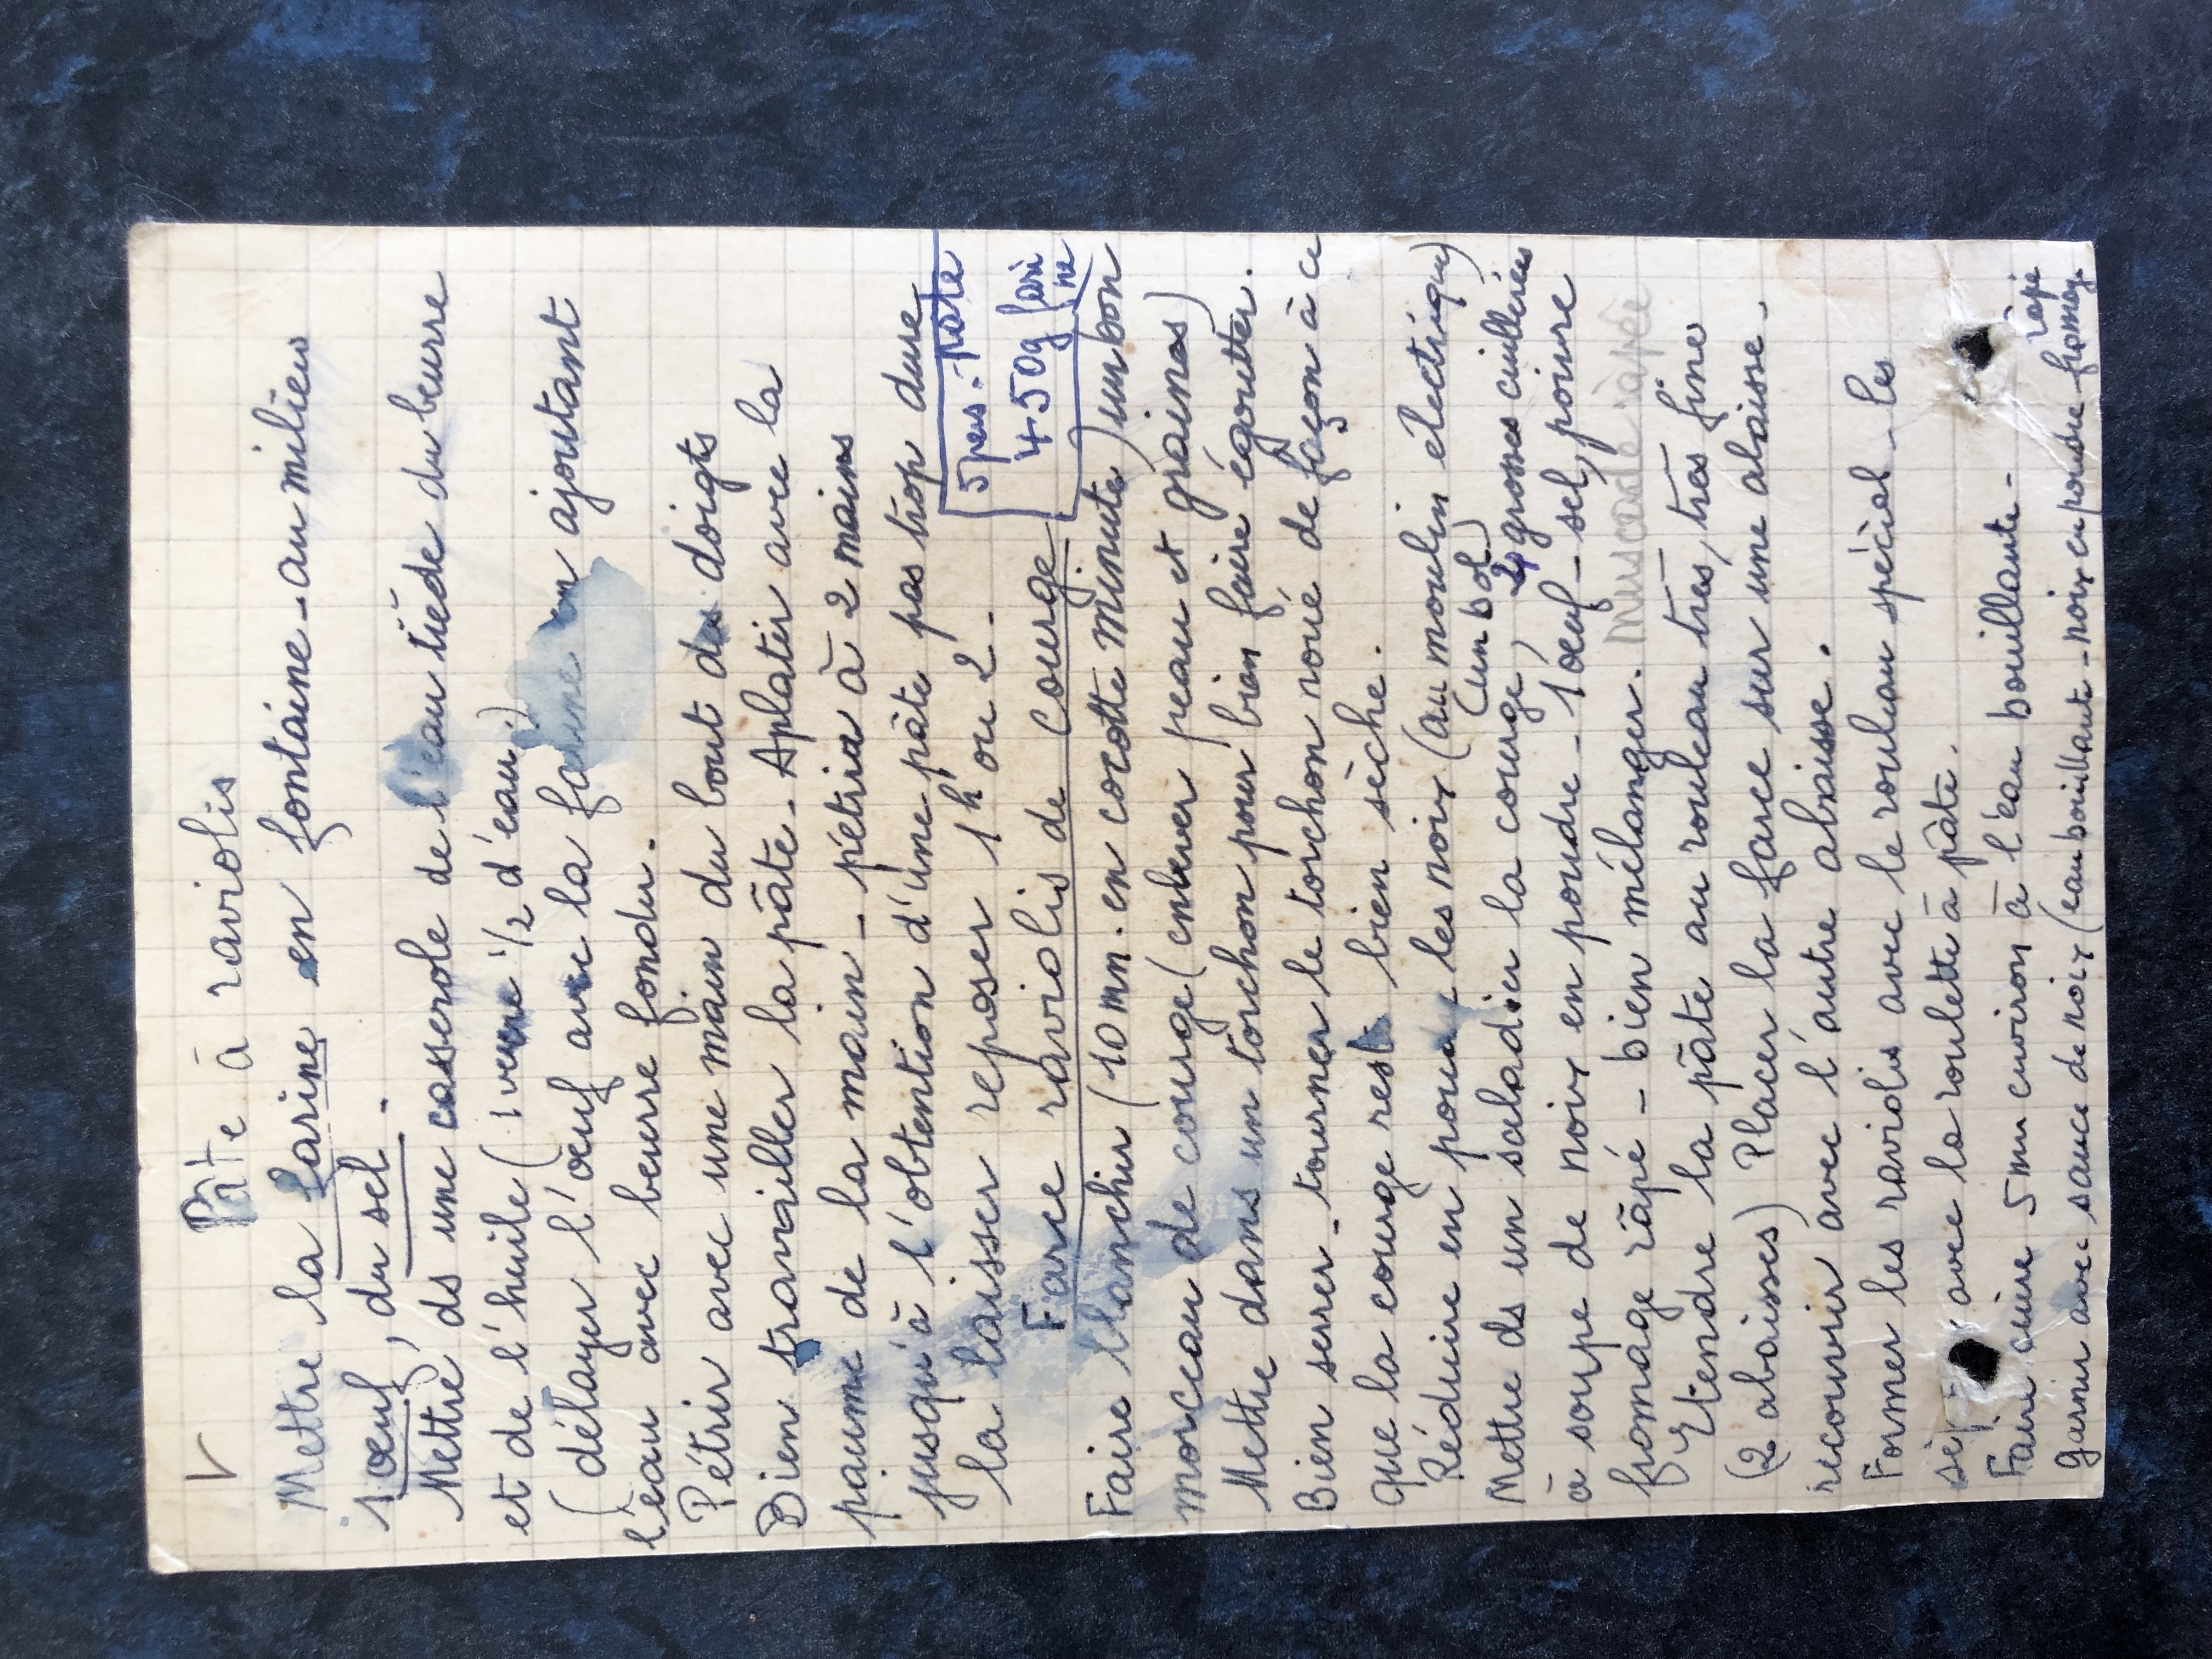 V Pâte à raviolis
Mettre la farine en fontaine - au milieu
1 œuf, du sel.
Mettre ds une casserole de l'eau tiède du beurre
et de l'huile (1 verre 1/2 d'eau)
(délayer l'œuf avec la farine en ajoutant
l'eau avec beurre fondu.
Pétrir avec une main du bout des doigts
Bien travailler la pâte - Aplatir avec la
paume de la main - pétrir à 2 mains
jusqu'à l'obtention d'une pâte pas trop dure
la laisser reposer 1h ou 2.
5 pers. pâte
450g fari
ne
Farce raviolis de courge
Faire blanchir (10 mn. en cocotte minute) un bon
morceau de courge (enlever peau et graines)
Mettre dans un torchon pour bien faire égoutter.
Bien serrer - tourner le torchon noué de façon à ce
que la courge reste bien sèche.
Réduire en poudre les noix (au moulin électrique)
(un bol)
Mettre ds un saladier la courge, grosses cuillérées
à soupe de noix en poudre - 1 œuf - sel, poivre
fromage râpé - bien mélanger. Muscade râpée
Etendre la pâte au rouleau très, très fine
(2 abaisses) Placer la farce sur une abaisse.
recouvrir avec l'autre abaisse.
Former les raviolis avec le rouleau spécial - les
avec la roulette à pâte.
Faire cuire 5 mn environ à l'eau bouillante -
râpé
Garnir avec sauce de noix (eau bouillante - noix en poudre - fromage